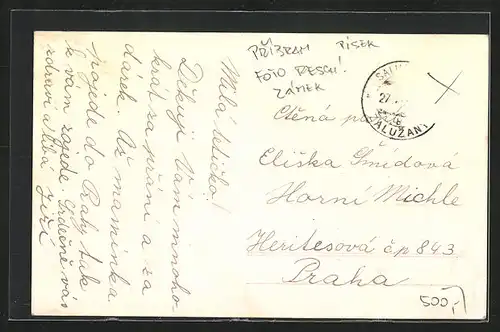 Milá tetičko!
Děkuji Vám mnoho-
krát za přání a za
dárek. Až maminka
pojede do Prahy tak
k vám zajede. Srdečně vás
zdraví a líbá Jiří
PŘÍBRAM PÍSEK
FOTO RESCH!
ZÁMEK
27.
ZALUŽANY
Ctěná
Eliška Šmídová
Horní Michle
Heritesová čp 843
Praha
500,-